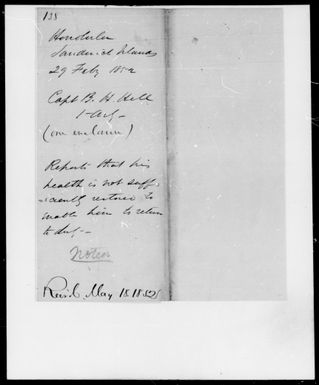 138
Honolulu
Sandwich Islands
29 Feby 1852
Capt B. H. Hill
1-Arty-
(one enclosure)
Reports that his
health is not suffi-
-ciently restored to
enable him to return
to duty-
Noted
Recd. May 18 1852